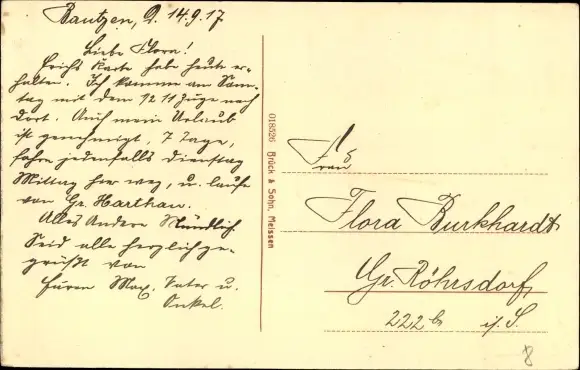 Bautzen, d. 14.9.17
Liebe Flora!
Erichs Karte habe heute er-
halten. Ich komme am Sonn-
tag mit dem 12 11 Zuge nach
dort. Auch mein Urlaub
ist genehmigt, 7 Tage,
fahre jedenfalls Dienstag
Mittag hier weg, u. laufe
von Gr. Harthau.
Alles Andere Mündlich.
Seid alle herzlich ge-
grüßt von
Euren Max. Vater u.
Onkel.
018526 Brück & Sohn, Meissen
Frau
Flora Burkhardt
Gr. Röhrsdorf
222b i/S.
8